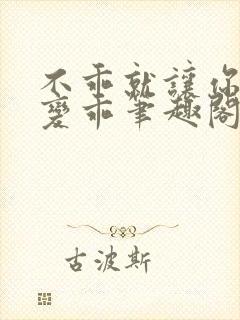 不乖就讓你
變乖筆趣閣
古波斯